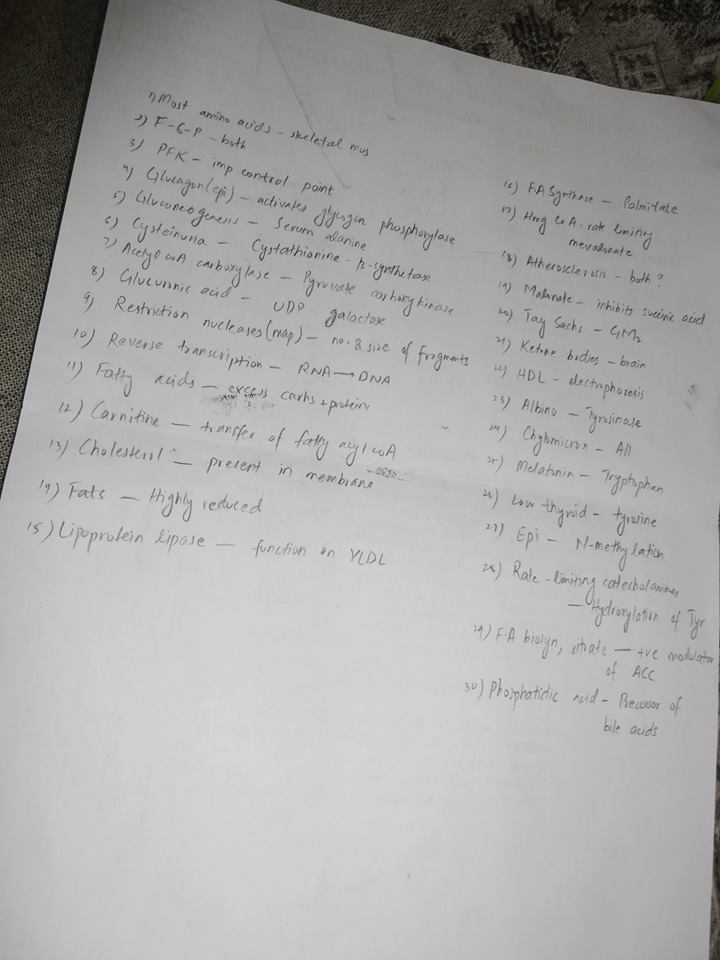 1) Most amino acids - skeletal mus
2) F-6-P - both
3) PFK - imp control point
4) Glucagon (epi) - activates glycogen phosphorylase
5) Gluconeogenesis - Serum alanine
6) Cysteinuria - Cystathionine - β-synthetase
7) Acetyl coA carboxylase - Pyruvate carboxykinase
8) Glucuronic acid - UDP galactose
9) Restriction nucleases (map) - no. & size of fragments
10) Reverse transcription - RNA → DNA
11) Fatty acids - excess carbs + proteins
12) Carnitine - transfer of fatty acyl coA
13) Cholesterol - present in membrane
14) Fats - Highly reduced
15) Lipoprotein lipase - function on VLDL
16) FA Synthase - Palmitate
17) Hmg CoA - rate limiting
mevalonate
18) Atherosclerosis - both?
19) Malonate - inhibits succinic acid
20) Tay Sachs - GM2
21) Ketone bodies - brain
22) HDL - electrophoresis
23) Albino - Tyrosinase
24) Chylomicron - All
25) Melatonin - Tryptophan
26) Low thyroid - tyrosine
27) Epi - N-methylation
28) Rate-limiting catecholamines
- Hydroxylation of Tyr
29) F.A biosyn, citrate - +ve modulator
of ACC
30) Phosphatidic acid - Precursor of
bile acids